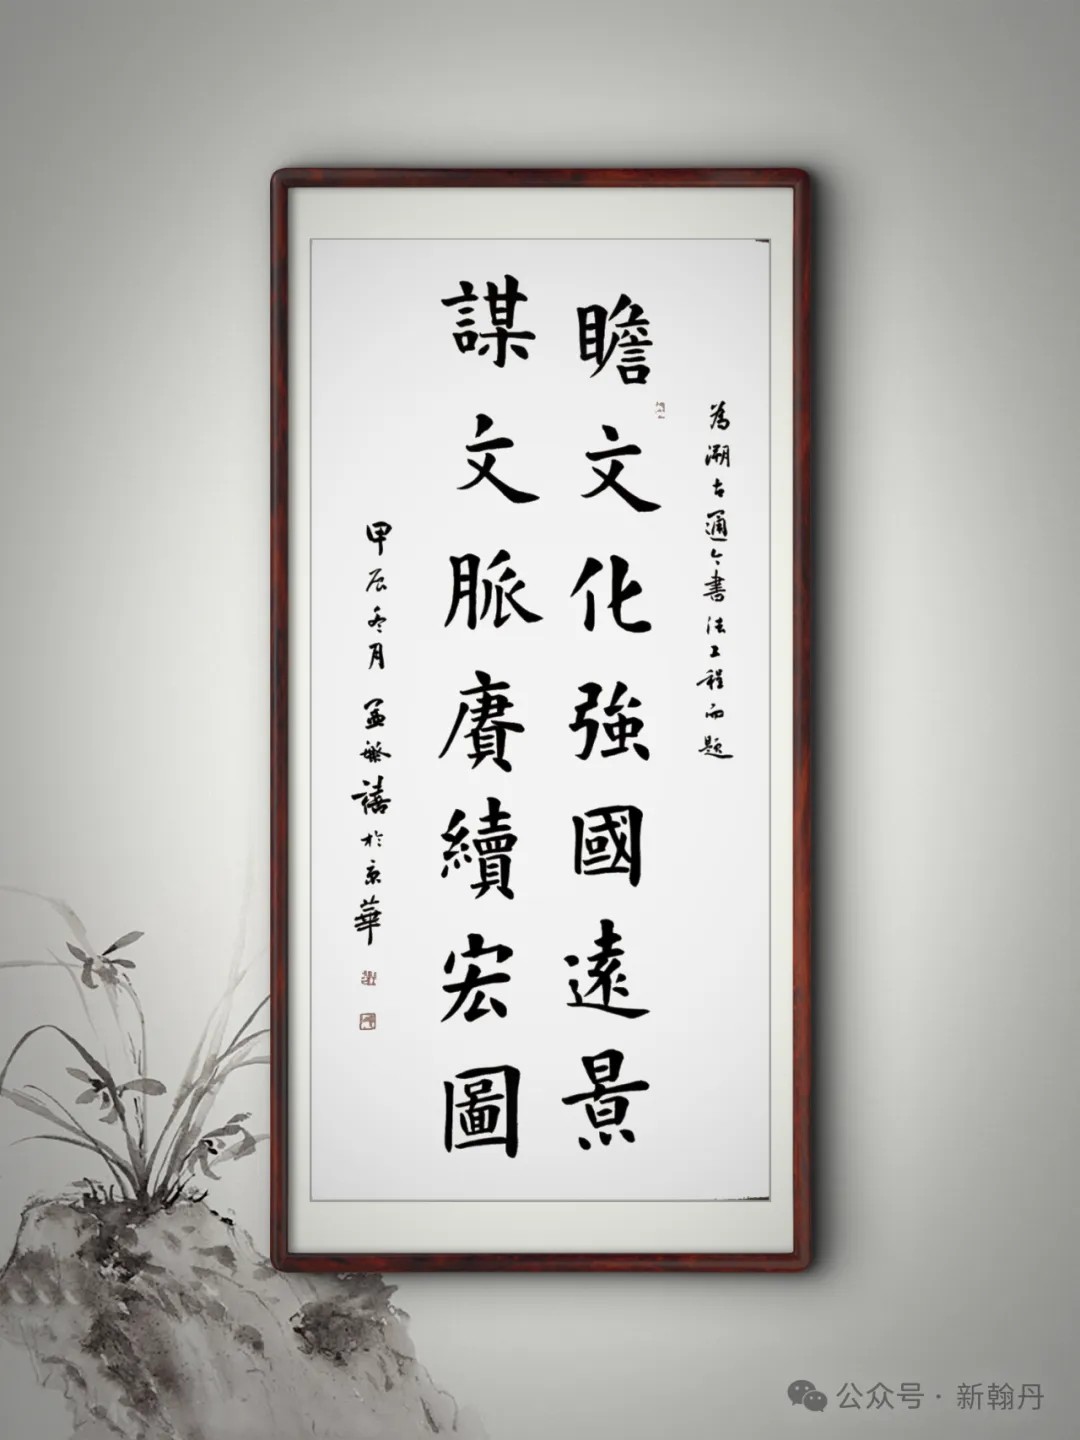 為溯古通今書法工程而題
瞻文化強國遠景
謀文脈賡續宏圖
甲辰冬月孟繁禧於京華
公众号·新翰丹